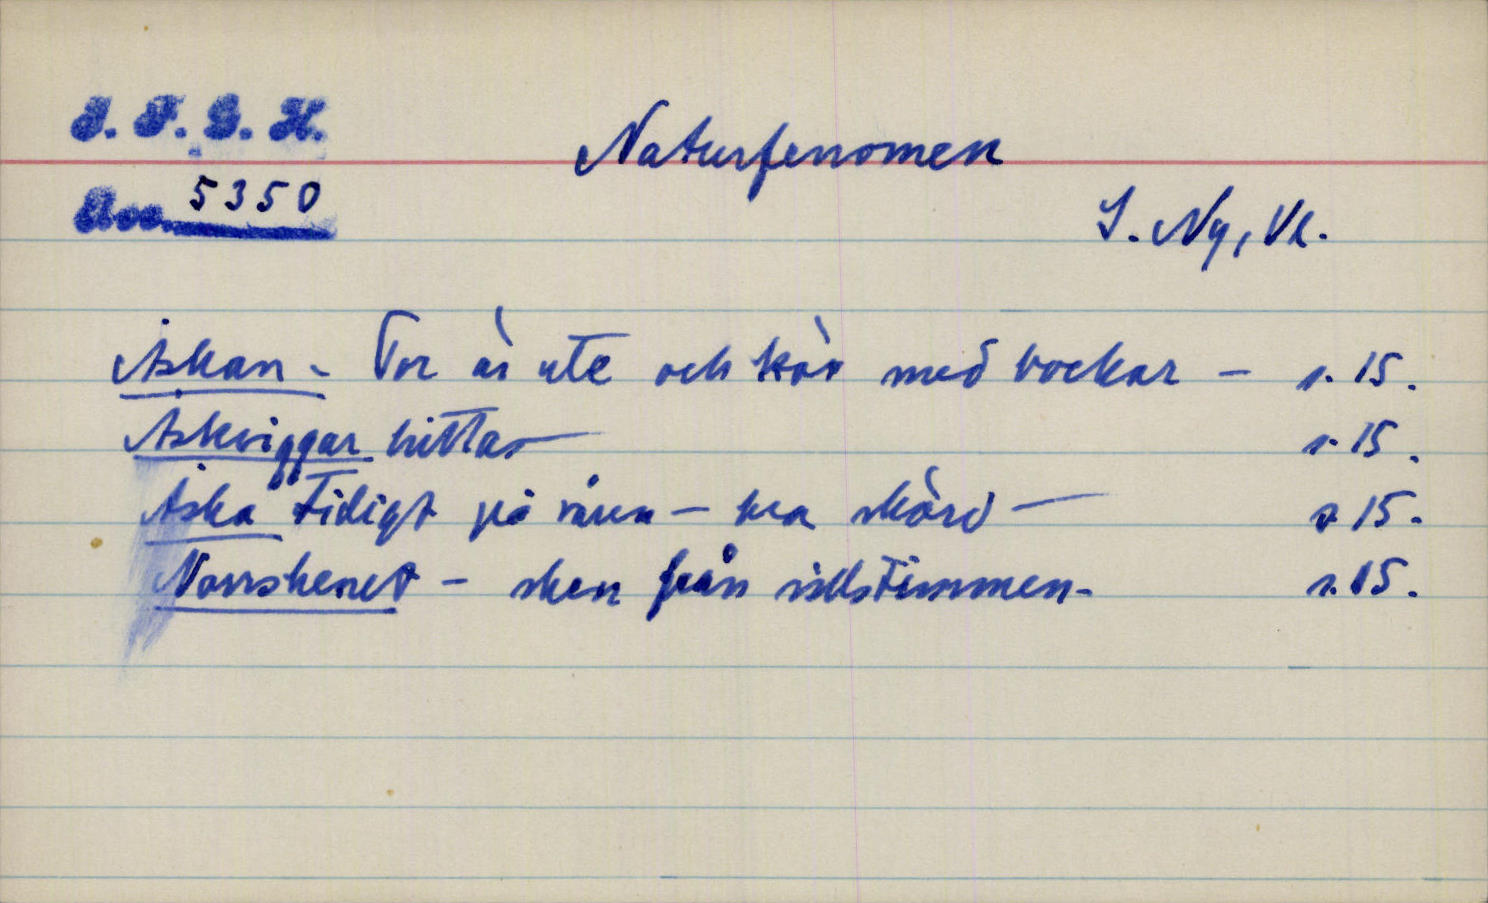 I. F. G. H.
Naturfenomen
Acc. 5350
S. Ny, Vl.
Åskan - Tor är ute och kör med bockar - s. 15.
Åskviggar hittas - s. 15.
Åska tidigt på våren - bra skörd - s 15.
Norrskenet - sken från sillstimmen - s. 15.